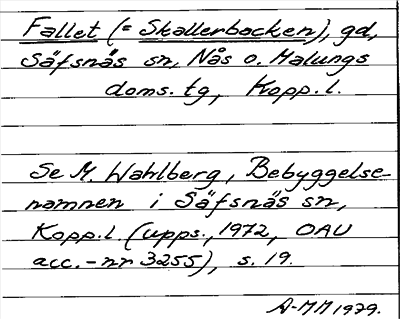 Fallet (= Skallerbacken), gd,
Säfsnäs sn, Nås o. Malungs
doms. tg, Kopp. l.
Se M. Wahlberg, Bebyggelse-
namnen i Säfsnäs sn,
Kopp. l. (upps., 1972, OAU
acc. - nr 3255), s. 19.
A-MM 1979.